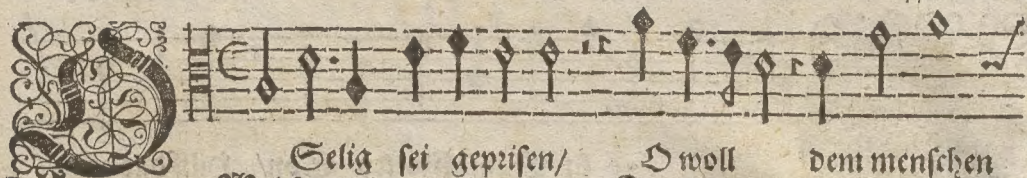 O Selig sei geprisen/ O woll dem menschen